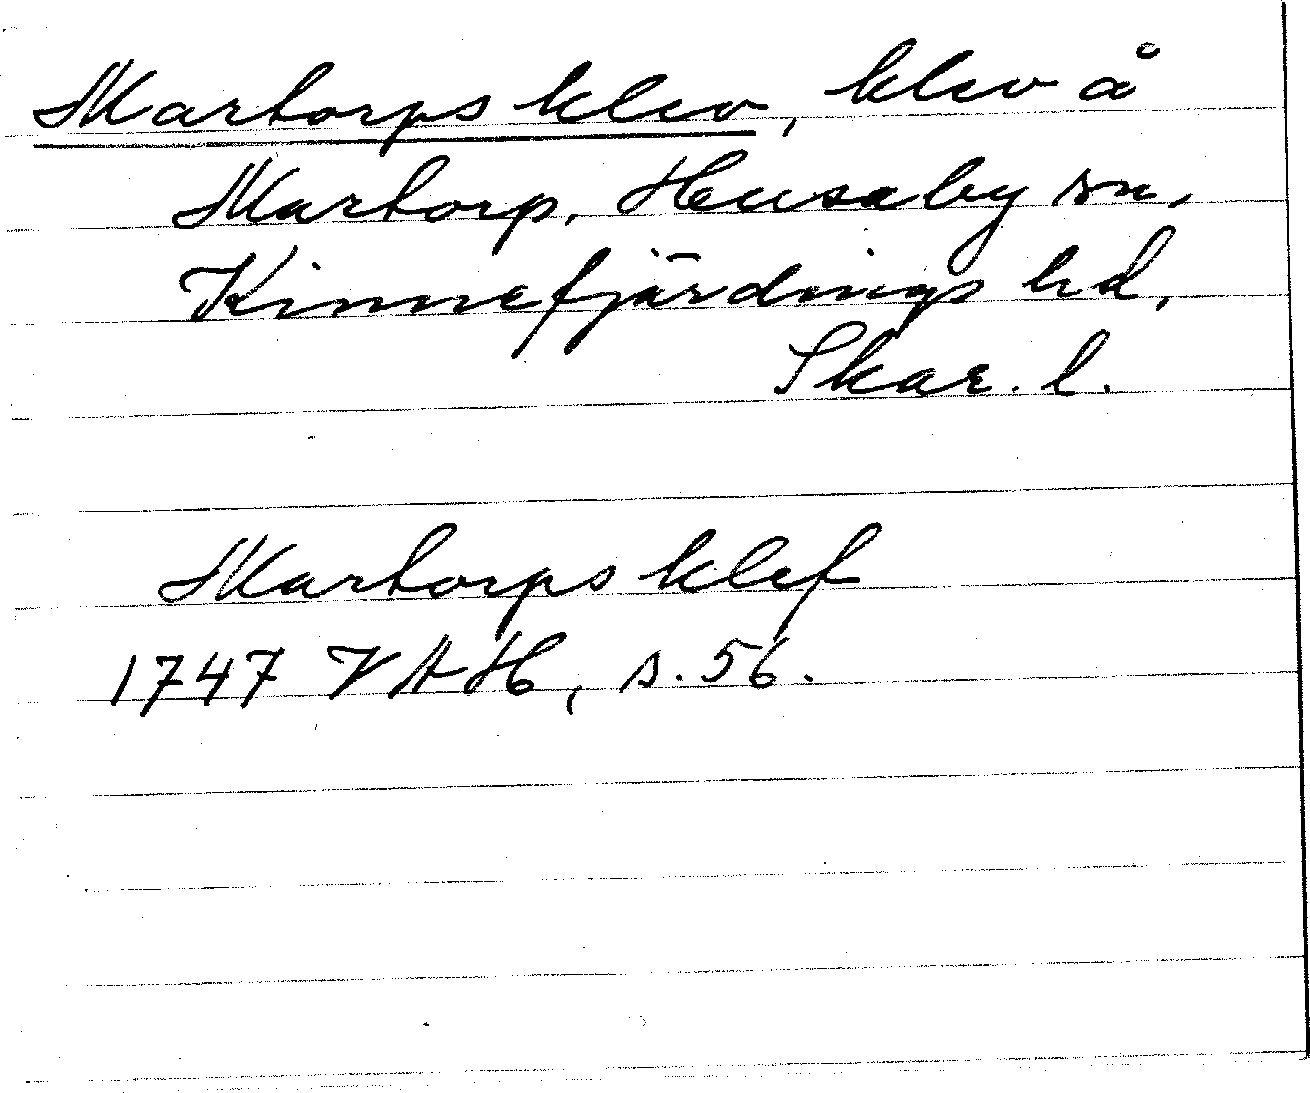 Martorps klev, klev å
Martorp, Husaby sn,
Kinnefjärdings hd,
Skar. l.
Martorps klef
1747 VAH, s. 56.